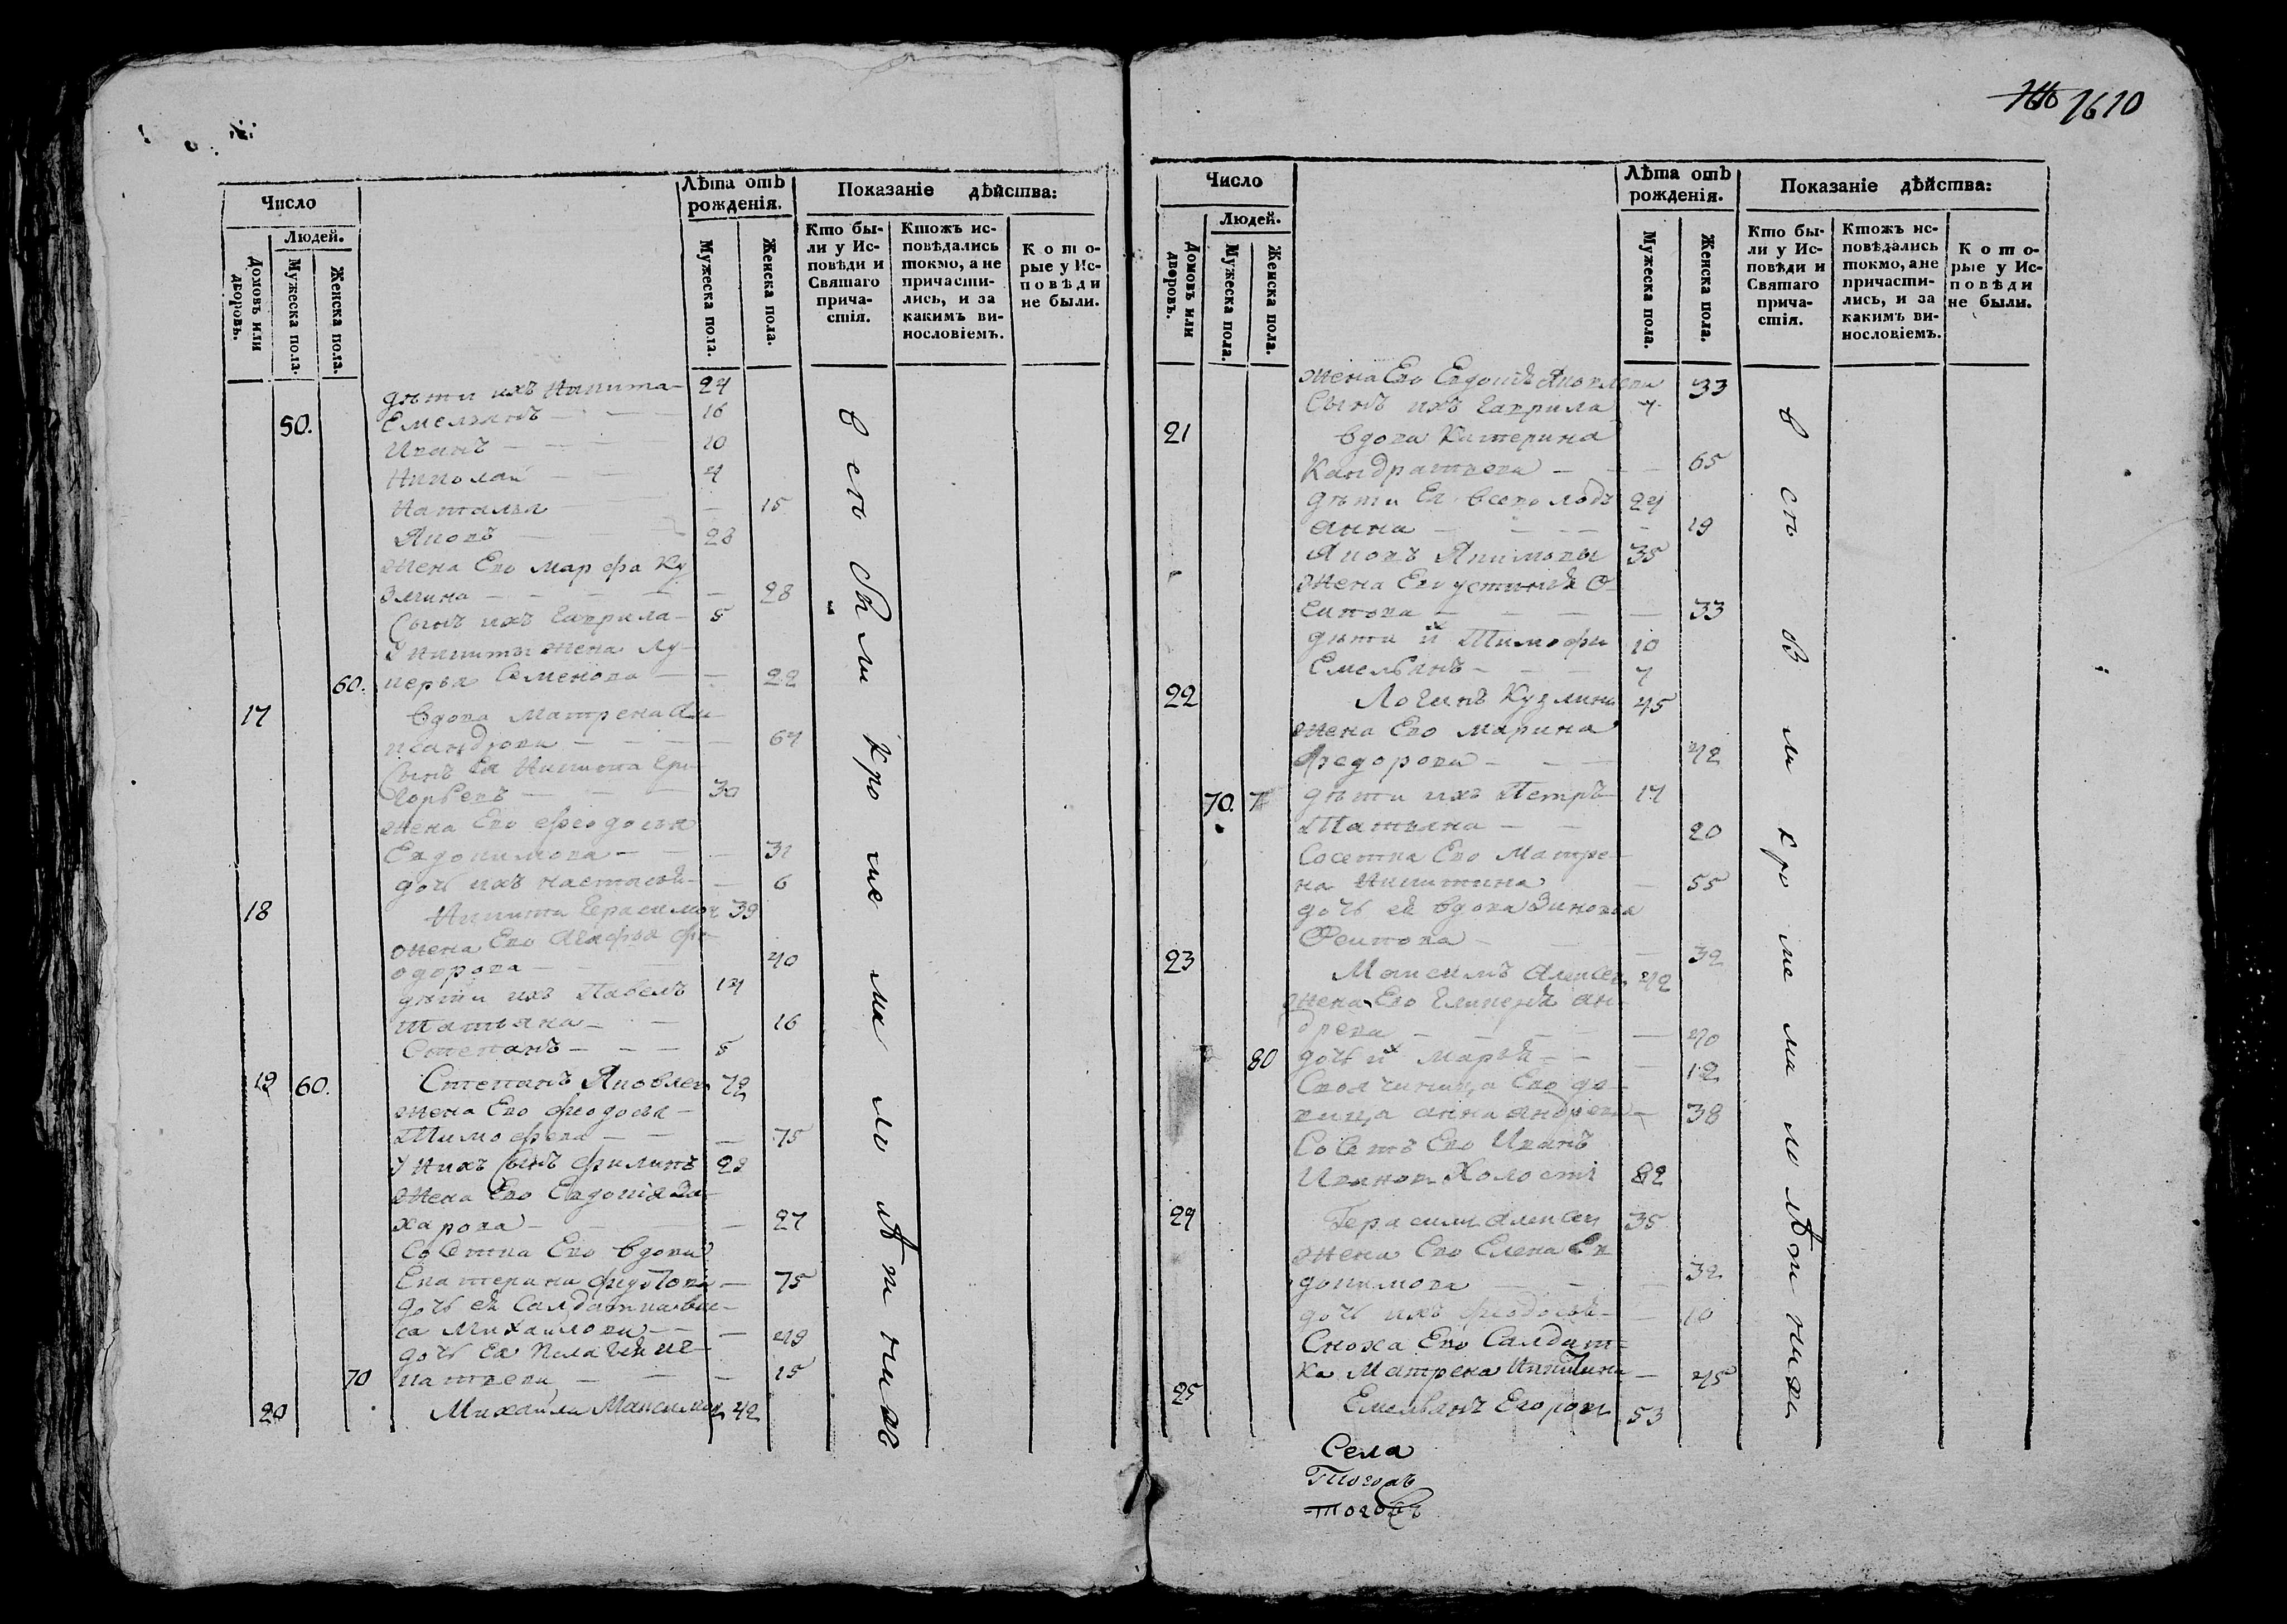 1610
Число
Лѣта отъ рожденія.
Показаніе дѣйства:
Людей.
Домовъ или дворовъ.
Мужеска пола.
Женска пола.
Мужеска пола.
Женска пола.
Кто бы-
ли у Ис-
повѣди и
Святаго
прича-
стія.
Ктожъ ис-
повѣдались
токмо, а не
причасти-
лись, и за
какимъ ви-
нословіемъ.
Кото-
рые у Ис-
повѣди
не были.
дѣти ихъ Никита 24
50. Емельянъ 16
Иванъ 10
Николай 4
Наталья 15
Яковъ 28
жена Его Марфа Ку
змина 28
Сынъ ихъ Гаврила 5
У Никиты жена Лу-
60. керья Семенова 22
17 вдова Матрена Але
ксандрова 64
Сынъ Ея Никита Гри-
горьевъ 30
жена Его Феодосья
Евдокимова 31
дочь ихъ Настасья 6
18 Никита Герасимов 39
жена Его Агафья Фе
одорова 40
дѣти ихъ Павелъ 14
Татьяна 16
Степанъ 5
19 60. Степанъ Яковлев 72
жена Его Феодосья
Тимофеева 75
У нихъ Сынъ Филипъ 29
жена Его Евдокія За
харова 27
Его вдова
Екатерина Федотова 75
дочь ея Салдатка Ва
са Михайлова 49
дочь Ея Пелагея Иг
70 натьева 15
20 Михайла Максимов 42
всѣ были кромѣ малолѣтнихъ
Число
Лѣта отъ рожденія.
Показаніе дѣйства:
Людей.
Домовъ или дворовъ.
Мужеска пола.
Женска пола.
Мужеска пола.
Женска пола.
Кто бы-
ли у Ис-
повѣди и
Святаго
прича-
стія.
Ктожъ ис-
повѣдались
токмо, а не
причасти-
лись, и за
какимъ ви-
нословіемъ.
Кото-
рые у Ис-
повѣди
не были.
жена Его Евдокія Яковлева 33
Сынъ ихъ Гаврила
21 вдова Катерина
Кандратьева 65
дѣти Ея Всеволодъ 24
Анна 19
Яковъ Акимовы 35
жена Его Устинья О
сипова 33
дѣти их Тимофи 10
Емельянъ
22 Логинъ Кузмин 45
жена Его Марина
Федорова 42
70. дѣти ихъ Петръ 17
Татьяна 20
Его Матре-
на Никитина 55
дочь ея вдова Зиновья
32
23 Максимъ Алексеев 42
жена Его Гликерья Ан
дреева 40
80 дочь их Марья 12
Своячиница Его де-
вица Анна Андреева 38
Его Иванъ
Иванов Холост 82
24 Герасим Алексеев 35
жена Его Елена Ев
докимова 32
дочь ихъ Феодосья 10
Сноха Его Салдат=
ка Матрена Никитина 45
25 Емельянъ Егоров 53
всѣ были кромѣ малолѣтнихъ
Села